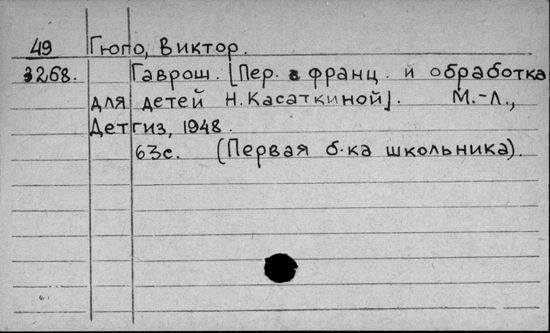 49 Гюго, Виктор.
3268. Гаврош. [Пер. с франц. и обработка
для детей Н. Касаткиной]. М.-Л.,
Детгиз, 1948.
63с. (Первая б-ка школьника).